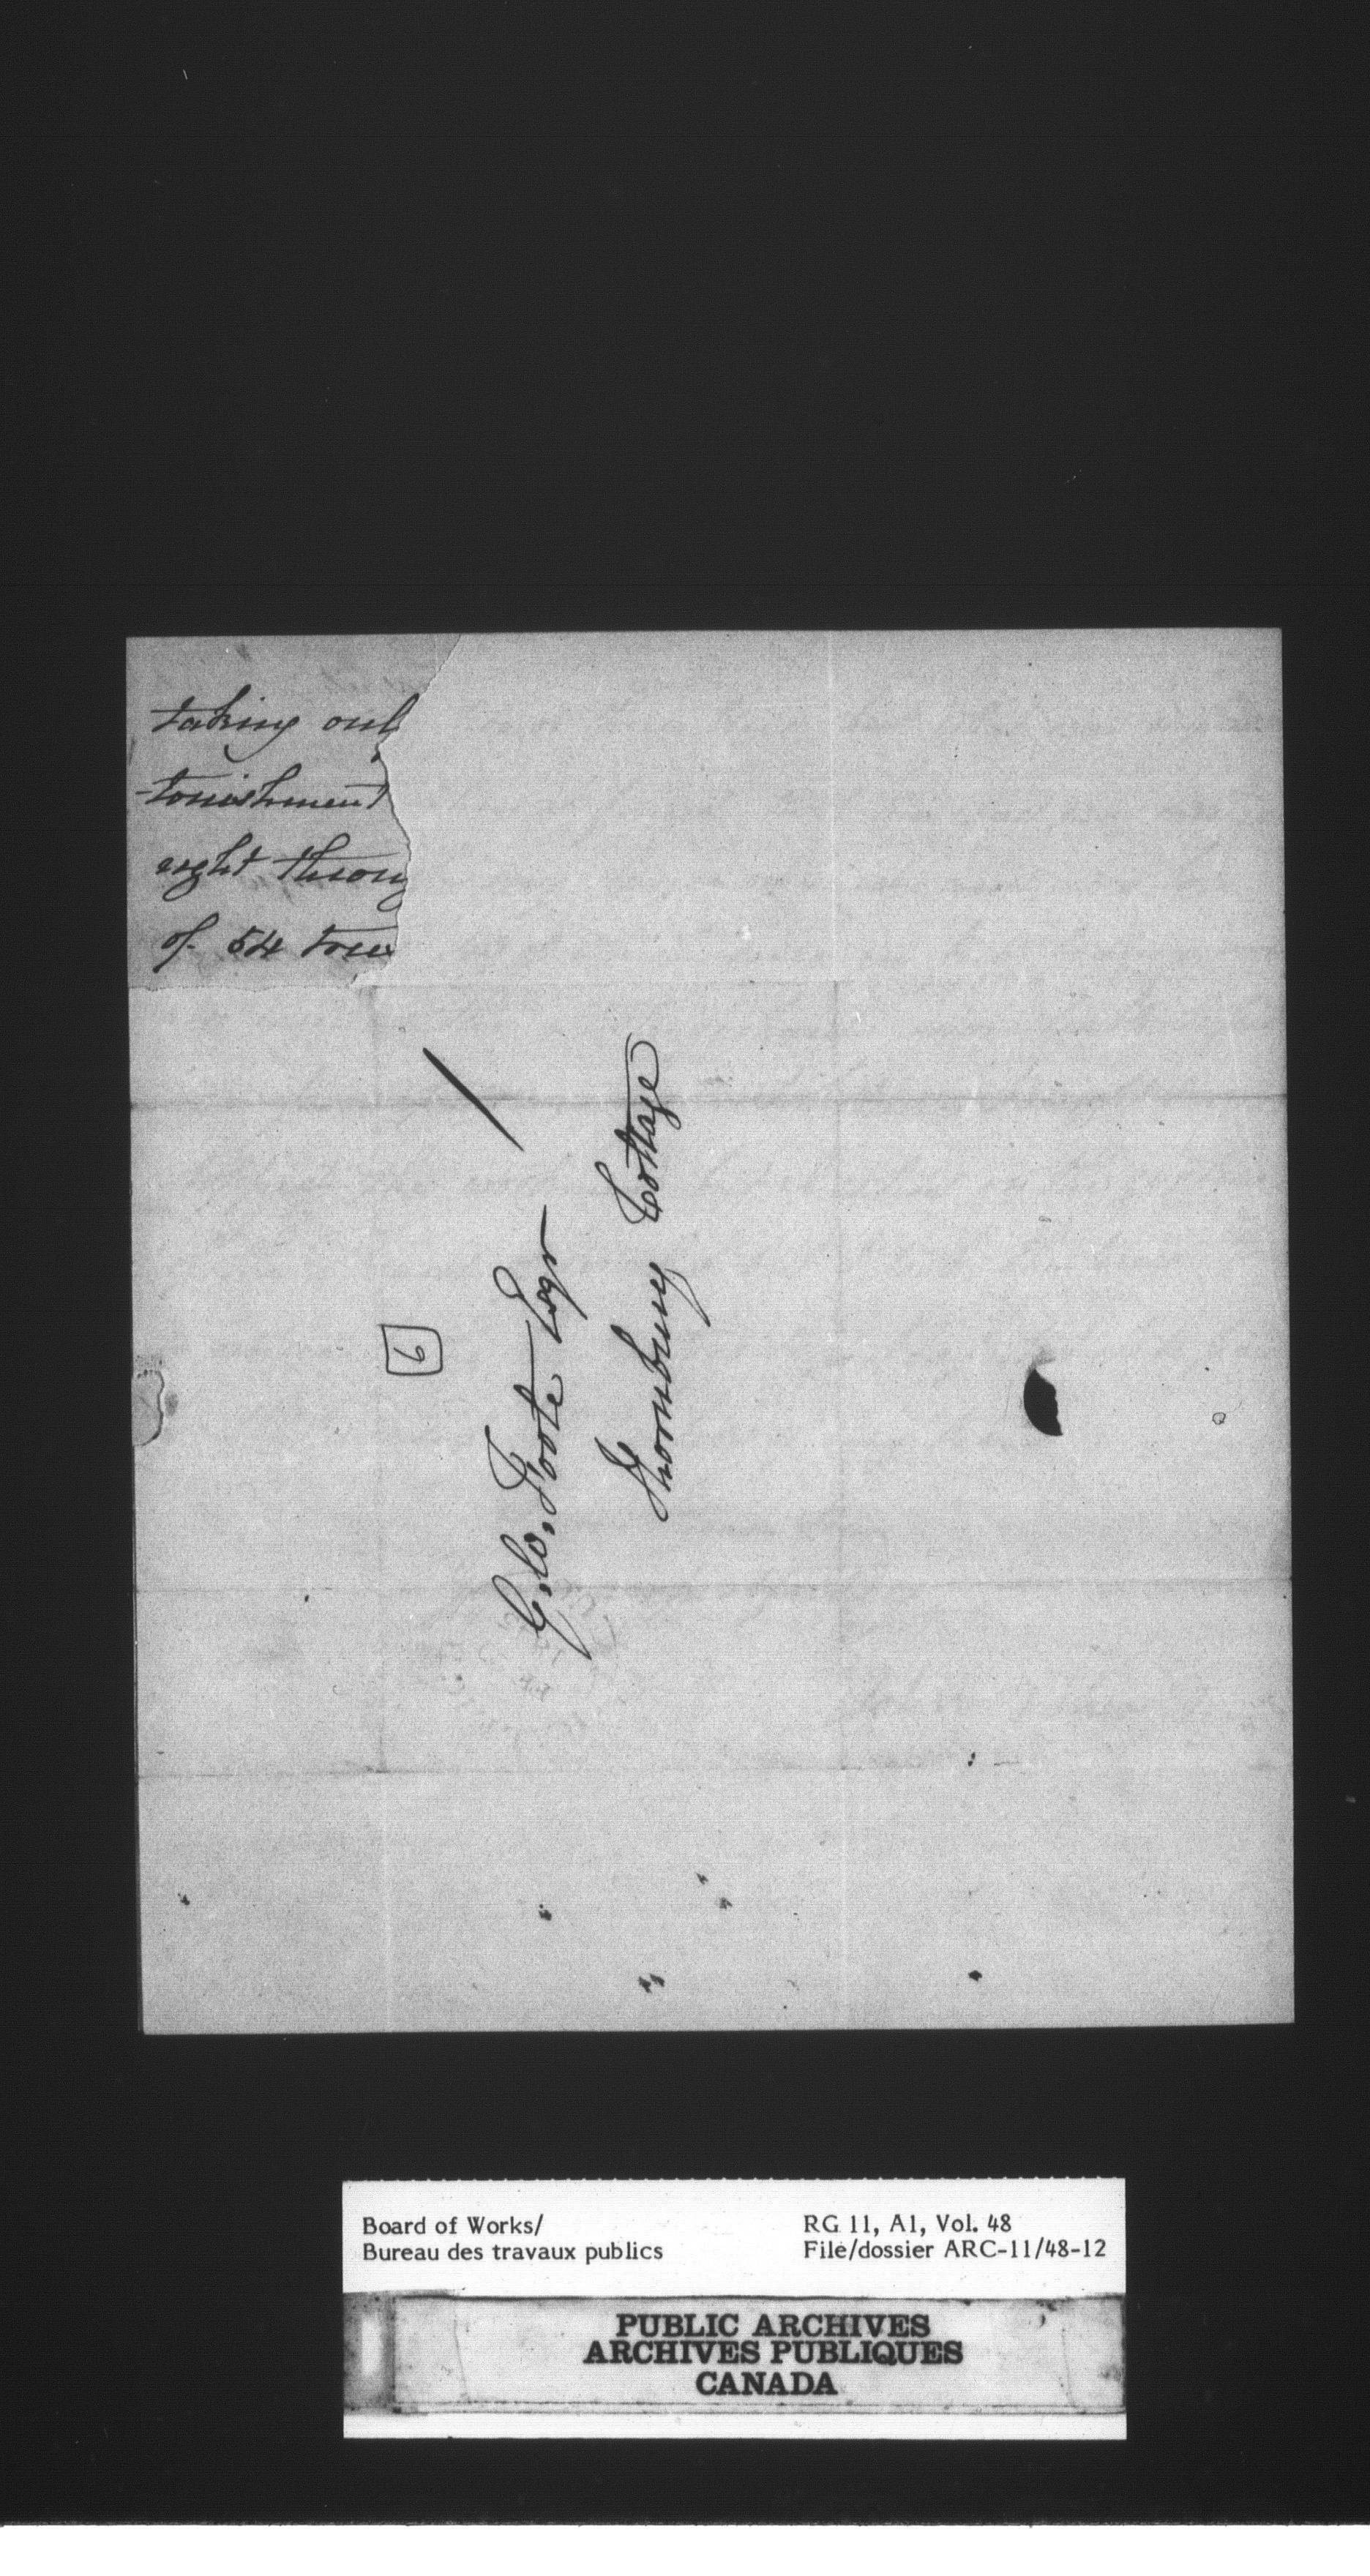 taking out
-tonishment
right throug
of 54 tons
G. W. Foote Esqr
Thornbury Cottage
9
Board of Works/
Bureau des travaux publics
RG 11, A1, Vol. 48
File/dossier ARC-11/48-12
PUBLIC ARCHIVES
ARCHIVES PUBLIQUES
CANADA